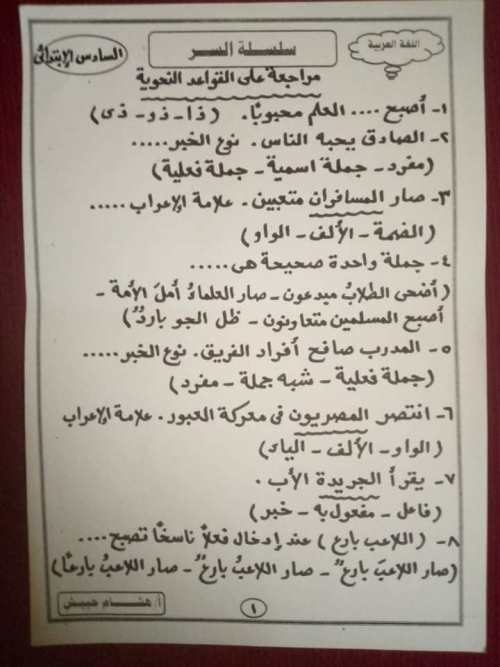 اللغة العربية
سلسلة السر
السادس الإبتدائى
مراجعة على القواعد النحوية
١- أصبح .... العلم محبوبًا. (ذا - ذو - ذى)
٢- الصادق يحبه الناس. نوع الخبر .....
(مفرد - جملة اسمية - جملة فعلية)
٣- صار المسافران متعبين. علامة الإعراب .....
(الضمة - الألف - الواو)
٤- جملة واحدة صحيحة هى .....
(أضحى الطلابُ مبدعون - صار العلماءُ أملَ الأمة -
أصبح المسلمين متعاونون - ظل الجو باردٌ)
٥- المدرب صافح أفراد الفريق. نوع الخبر .....
(جملة فعلية - شبه جملة - مفرد)
٦- انتصر المصريون فى معركة العبور. علامة الإعراب
(الواو - الألف - الياء)
٧- يقرأ الجريدة الأب.
(فاعل - مفعول به - خبر)
٨- (اللاعب بارع) عند إدخال فعلاً ناسخًا تصبح ....
(صار اللاعبَ بارعٌ - صار اللاعبُ بارعٌ - صار اللاعبُ بارعًا)
١
أ/ هشام حبيش